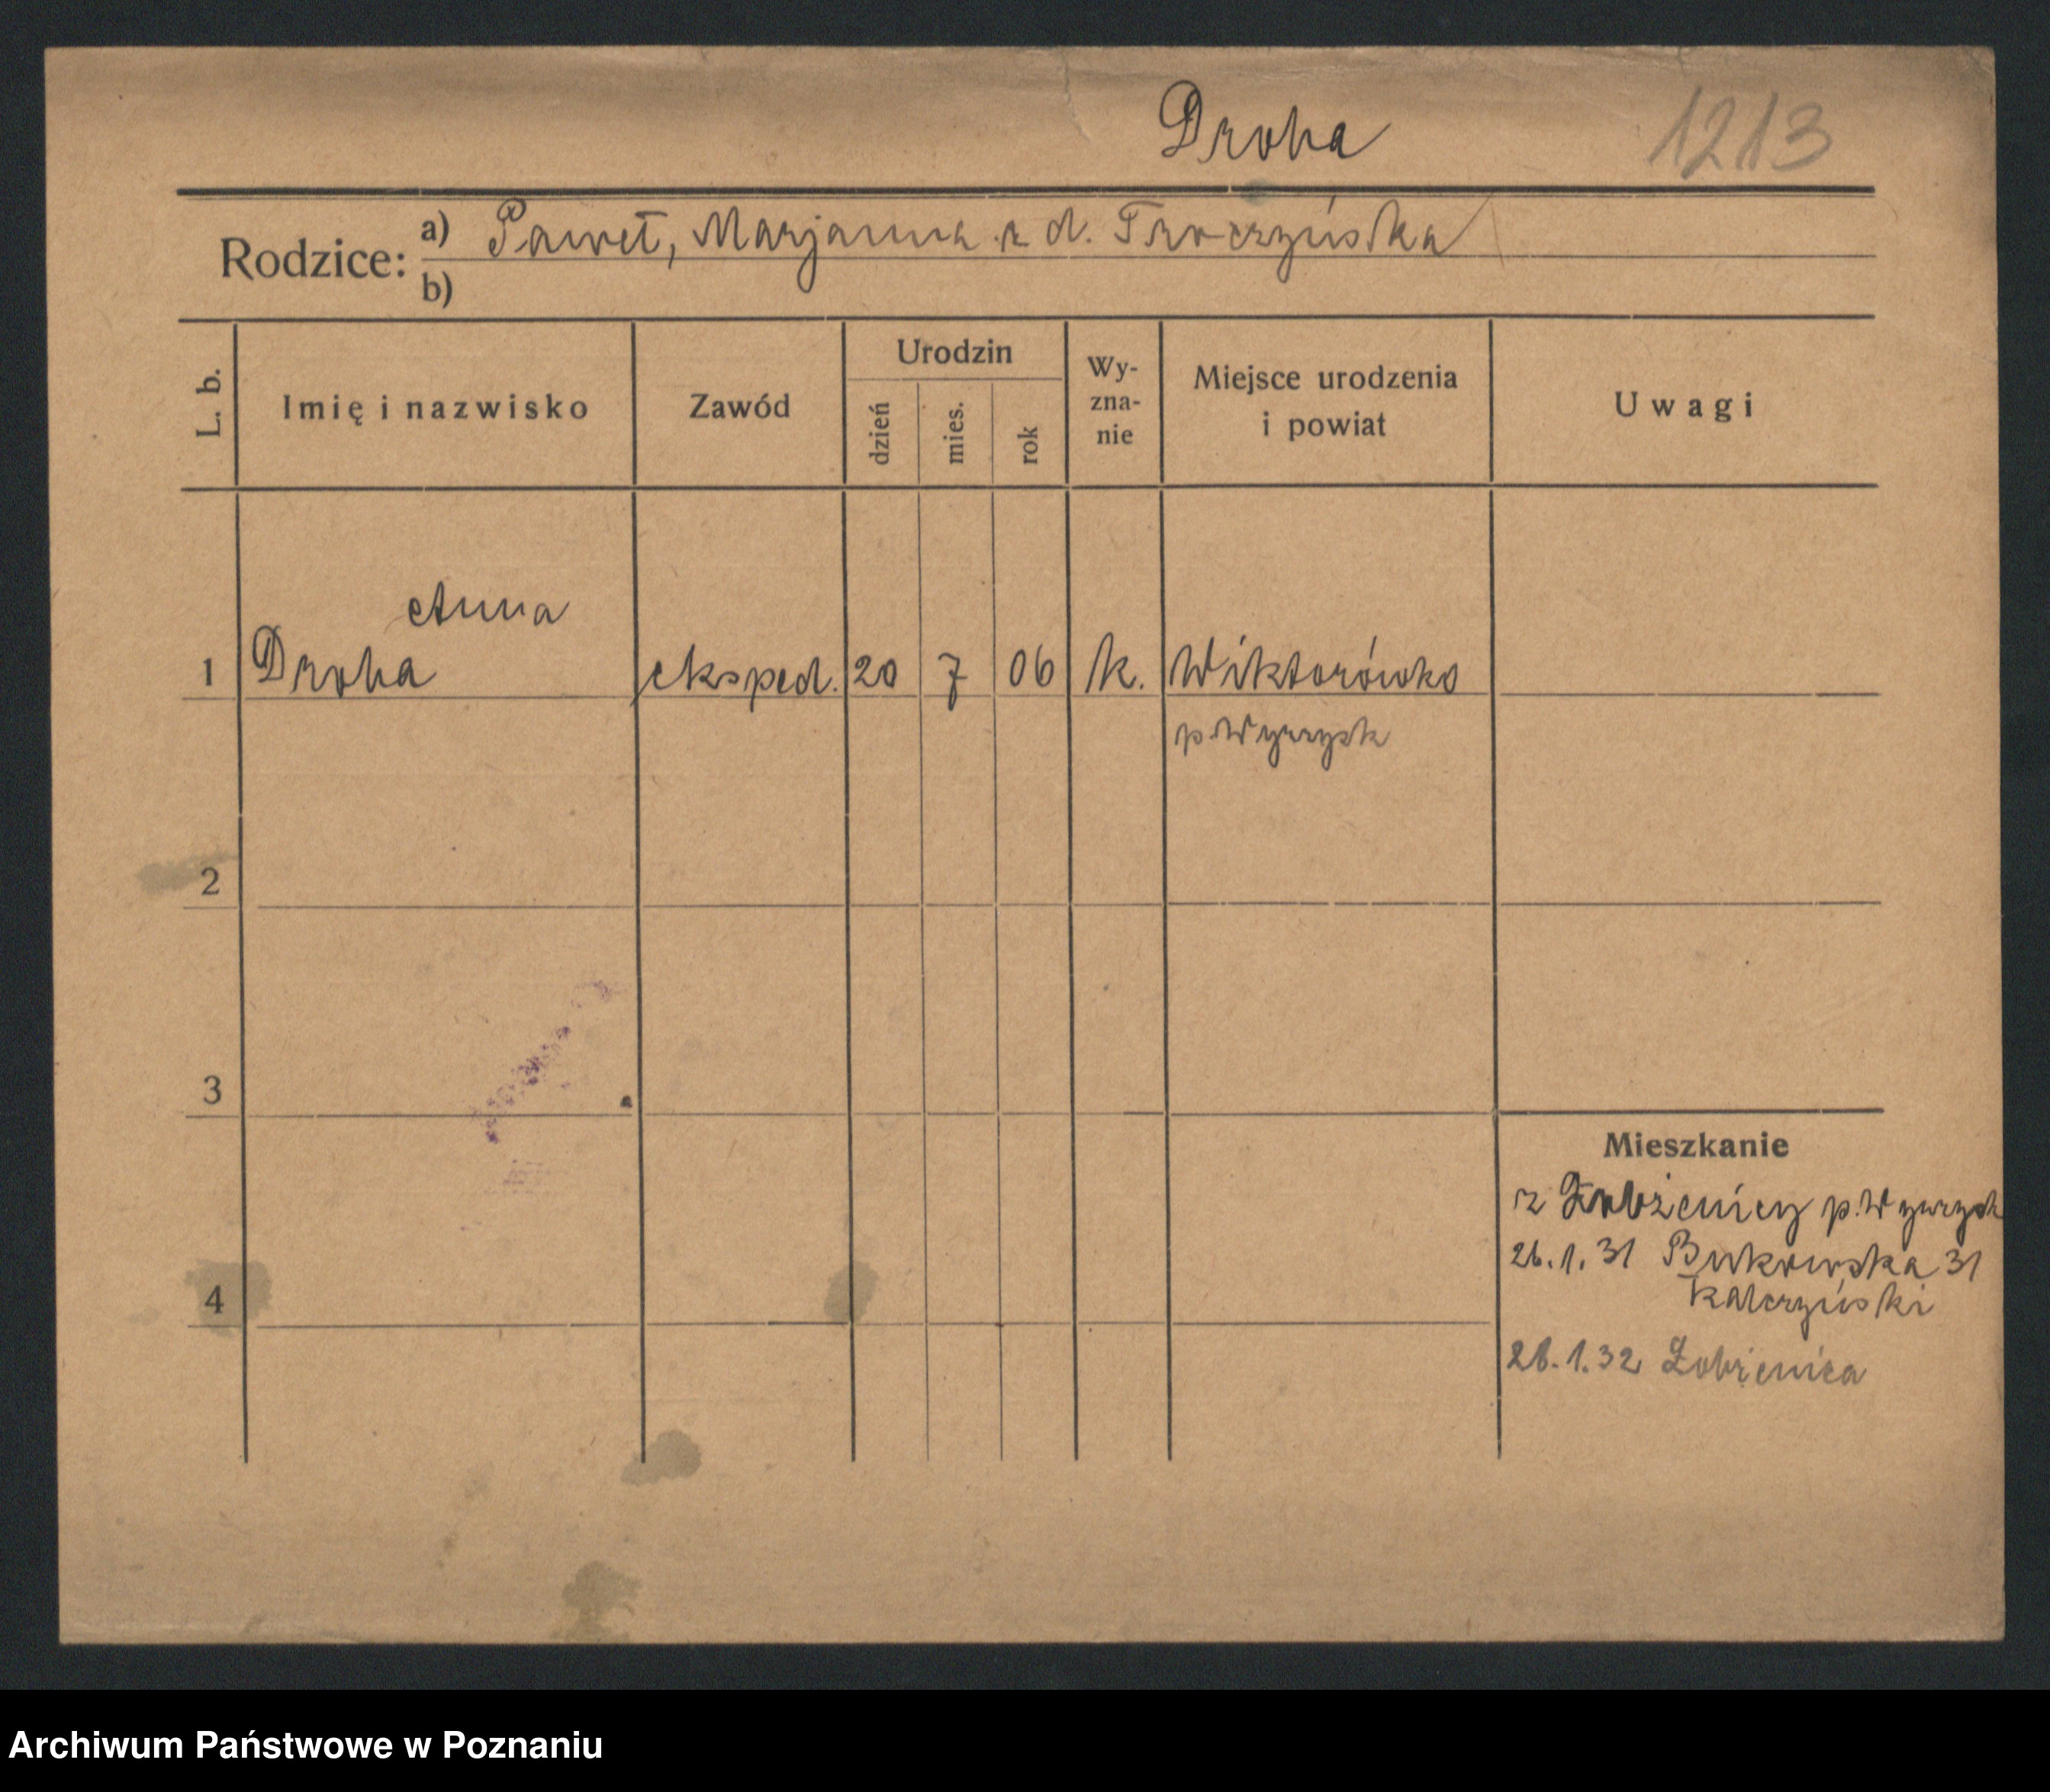 Droha
1213
Rodzice: a) Paweł, Marjanna z d. Troczyńska
b)
L. b.
Imię i nazwisko
Zawód
Urodzin
dzień
mies.
rok
Wy-
zna-
nie
Miejsce urodzenia
i powiat
Uwagi
Anna
1 Droha eksped. 20 7 06 k. Wiktorówko
p. Wyrzysk
2
3
Mieszkanie
z Łobżenicy p. Wyrzysk
26. 1. 31 Bukowska 31
4
Kalczyński
26. 1. 32 Łobżenica
Archiwum Państwowe w Poznaniu